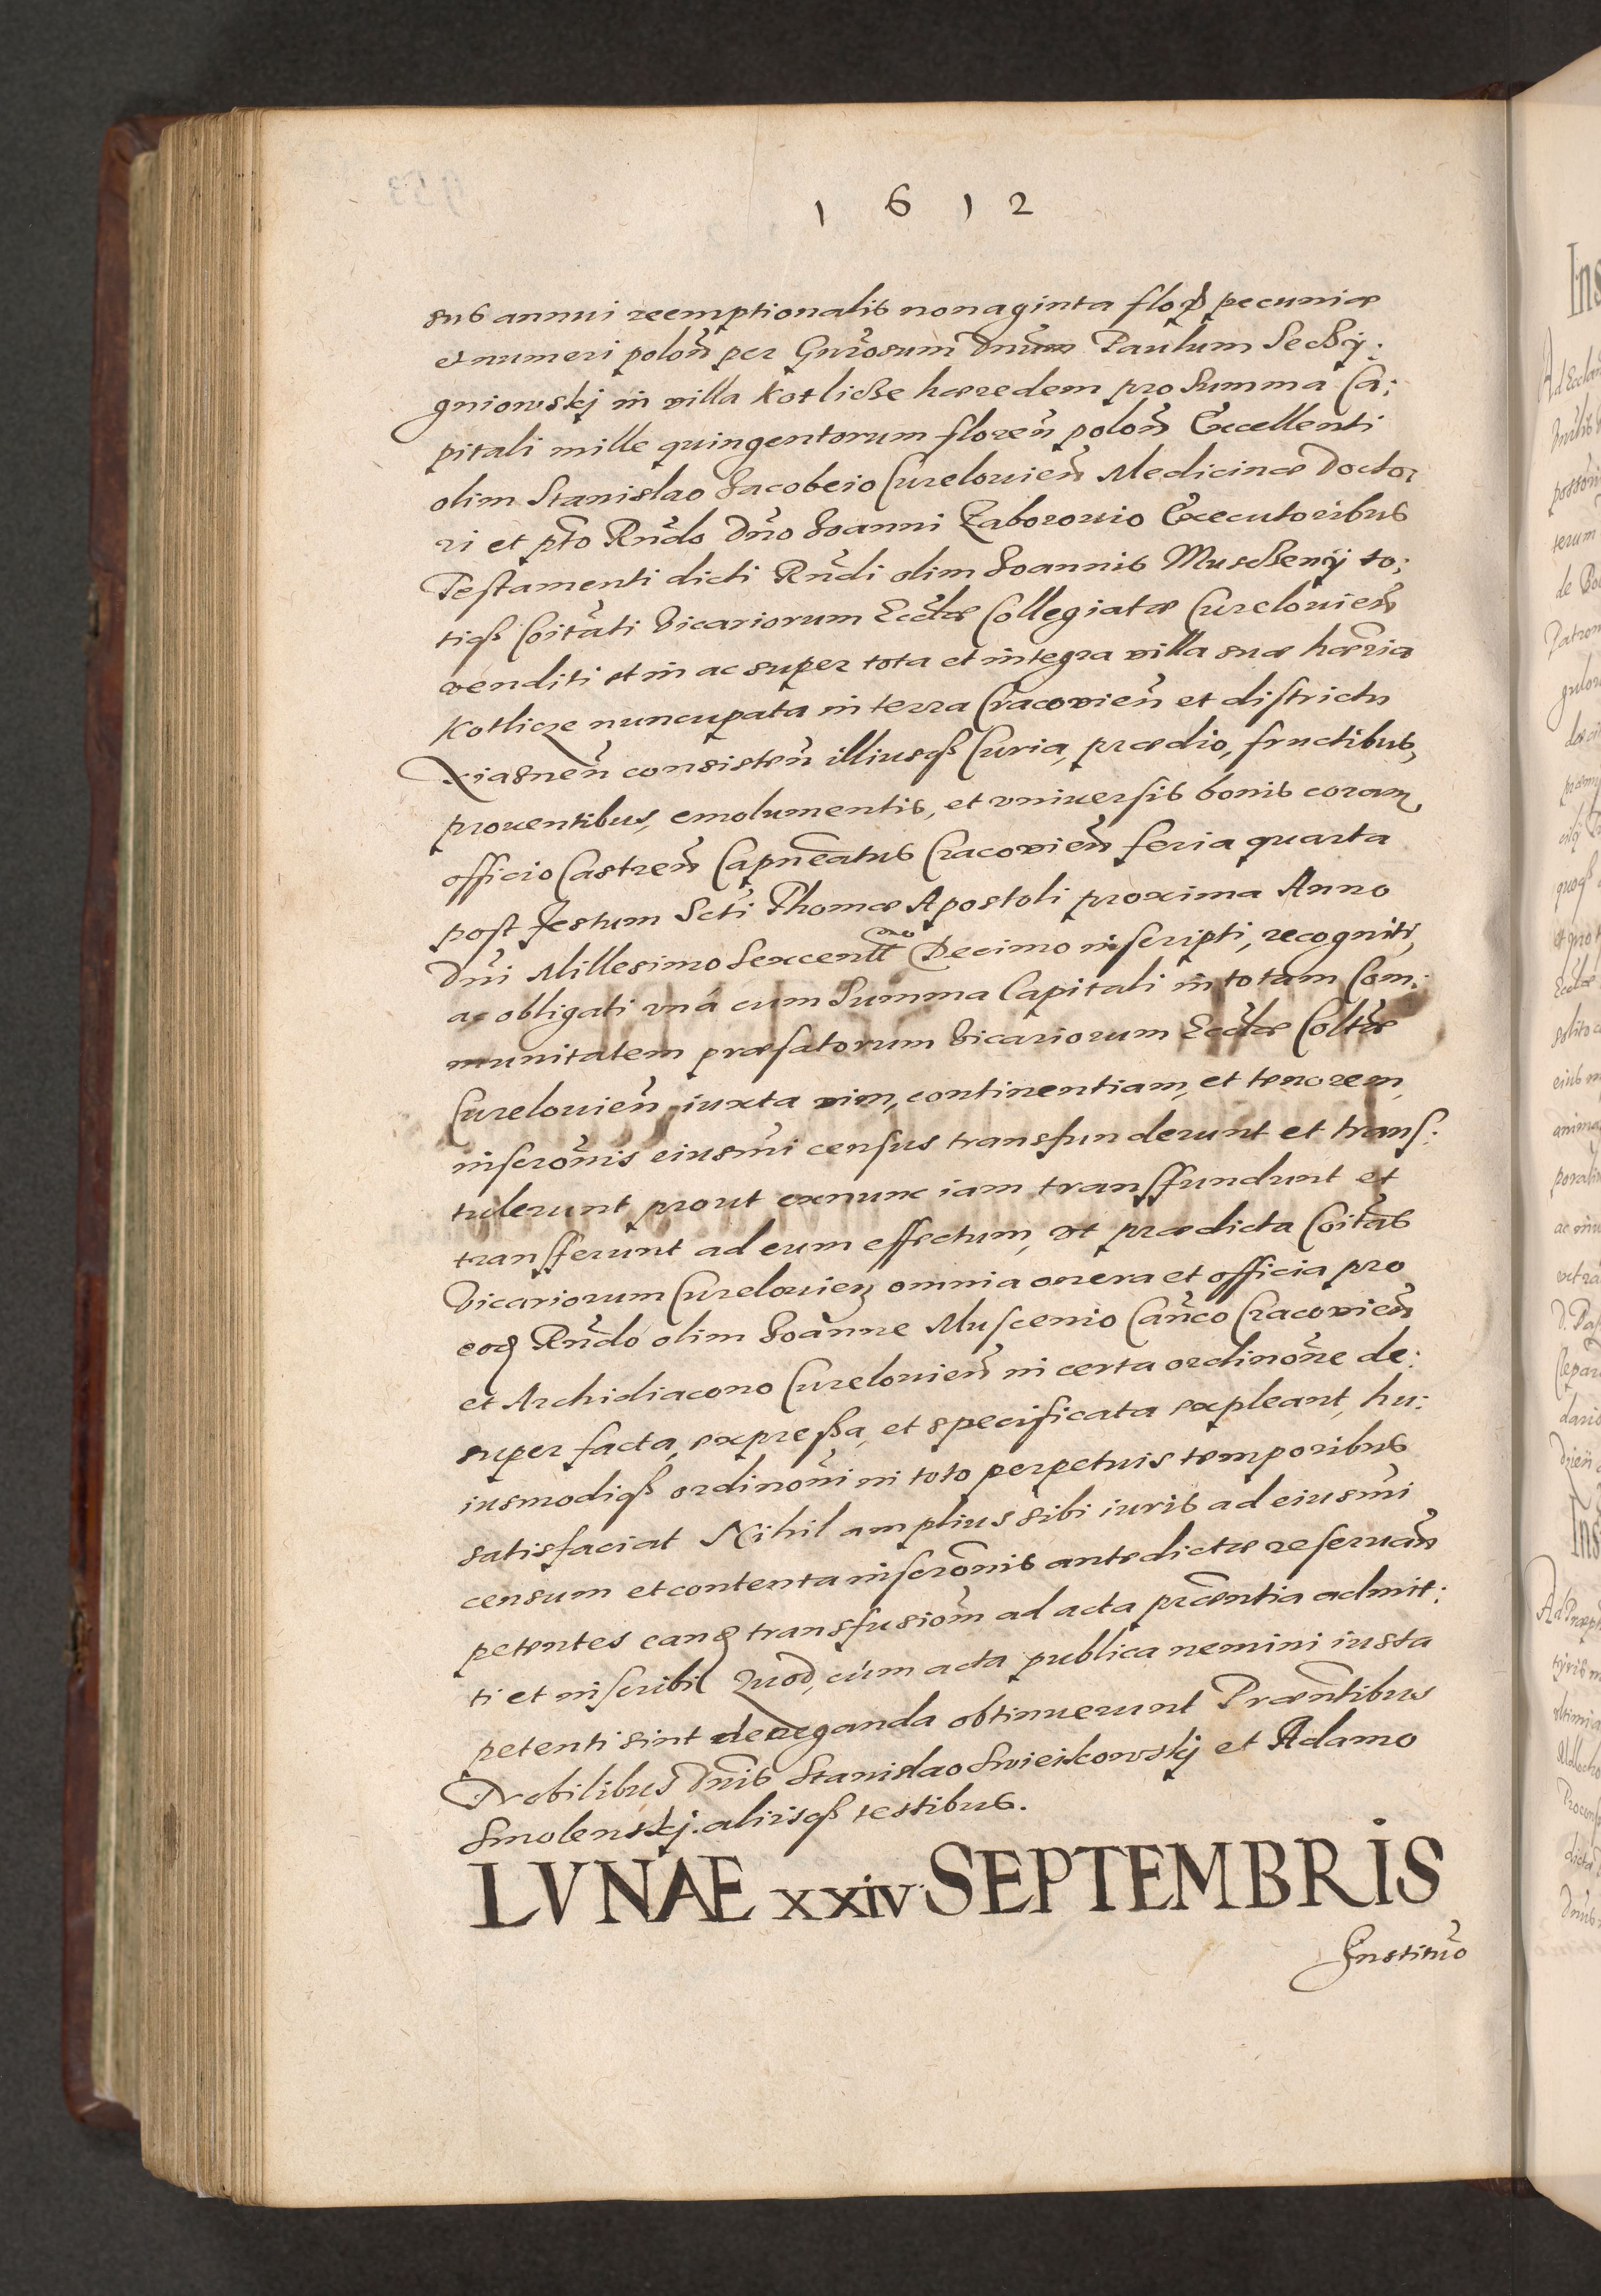 1612
sus annui reemptionalis nonaginta flor pecuniæ
et numeri polon̄ per Gn̄rosum Dnūm Paulum Sechÿ:
gniowskj in villa Kotlicße hæredem pro Summa Ca:
pitali mille quingentorum floren̄ polon̄ Excellenti
olim Stanislao Jacobeio Curelouien̄ Medicinæ Docto:
ri et pt̄o Rn̄do Dn̄o Joanni Zaborouio Executoribus
Testamenti dicti Rn̄di olim Joannis Muschenÿ to:
tiqß Coitāti Vicariorum Eccl̄æ Collegiatæ Curelouien̄
venditi et in ac super tota et integra villa suæ hær̄ia
Kotlicze nuncupata in terra Cracouien̄ et districtu
Xiasnen̄ consisten̄ illiusqß Curia, prædio, fructibus,
prouentibus, emolumentis, et vniuersis bonis coram
officio Castren̄ Capn̄eatus Cracouien̄ feria quarta
post festum Sctī Thomæ Apostoli proxima Anno
Dn̄i Millesimo Sexcentmo Decimo inscripti, recogniti,
ac obligati vná cum Summa Capitali in totam Com:
munitatem præfatorum Vicariorum Eccl̄æ Coltǣ
Curelouien̄ iuxta vim, continentiam, et tenorem
inscrōnis eiusm̄i census transfunderunt et trans:
tulerunt prout exnunc iam transffundunt et
transfferunt ad eum effectum, vt prædicta Coitās
Vicariorum Curelouien̄ omnia onera et officia pro
eod Rn̄do olim Joanne Muscenio Can̄co Cracouien̄
et Archidiacono Curelouien̄ in certa ordinōne de:
super facta, expreßa, et specificata expleant, hu:
iusmodiqß ordinōni in toto perpetuis temporibus
satisfaciat Nihil amplius sibi iuris ad eiusm̄i
censum et contenta inscrōnis antedictæ reseruan̄
petentes eand transfusiom̄ ad acta præn̄tia admit:
ti et inscribi Quod, cúm acta publica nemini iusta
petenti sint deneganda obtinuerunt Præn̄tibus
Nobilibus Dn̄is Stanislao Swieikowskj et Adamo
Smolenskj. aliisqß testibus.
LVNAE xxiv SEPTEMBRIS
Institūo